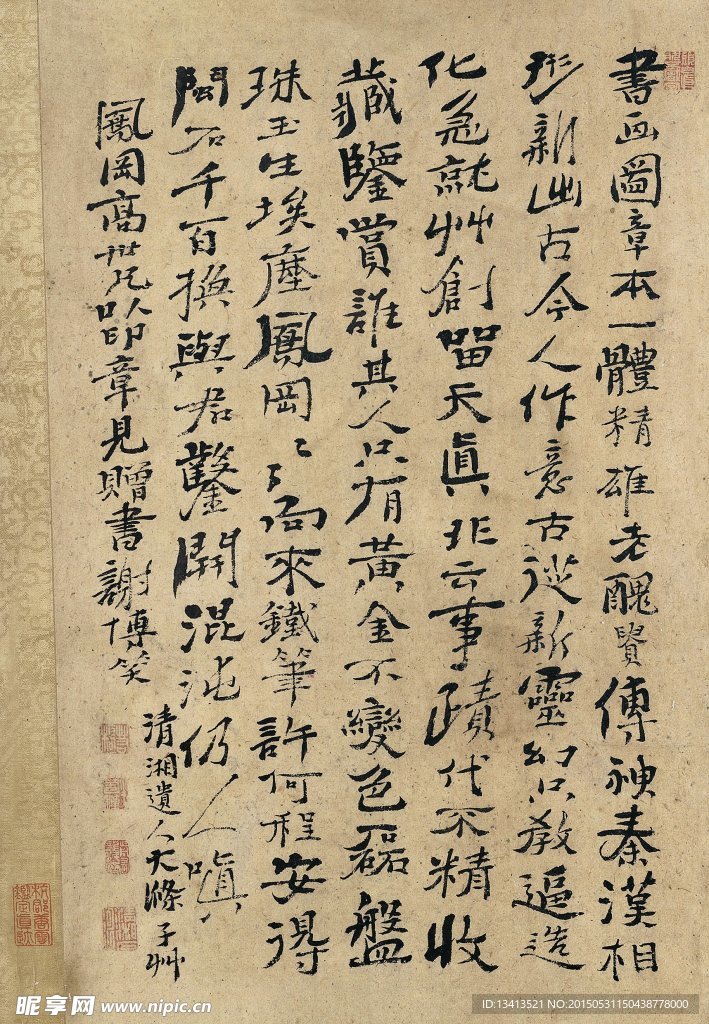 書画圖章本一體精雄老醜貴傳神秦漢相
形新出古今人作意古從新靈幻只教逼造
化急就艸創留天真非云事蹟代不精收
藏鑒賞誰其人只有黃金不變色磊盤
珠玉生埃塵鳳岡〻〻向來鐵筆許何程安得
閩石千百換與君鑿開混沌仍人嗔
鳳岡高世兄以印章見贈書謝博笑
清湘遺人大滌子艸
昵享网 www.nipic.cn
ID:13413521 NO:20150531150438778000